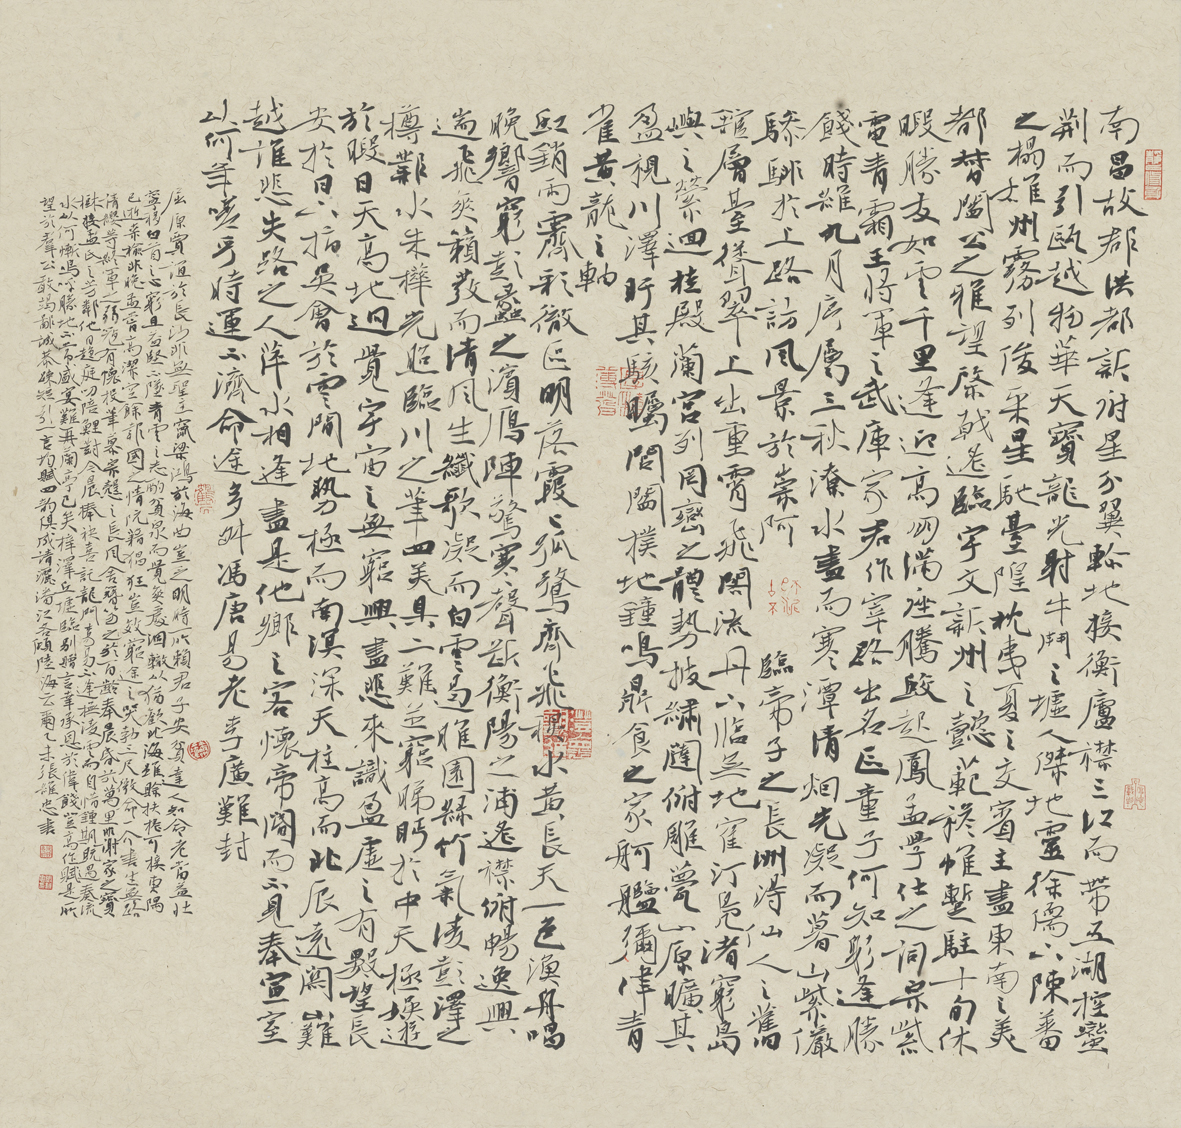 南昌故郡洪都新府星分翼軫地接衡廬襟三江而帶五湖控蠻
荊而引甌越物華天寶龍光射牛鬥之墟人傑地靈徐孺下陳蕃
之榻雄州霧列俊采星馳臺隍枕夷夏之交賓主盡東南之美
都督閻公之雅望棨戟遙臨宇文新州之懿範襜帷暫駐十旬休
暇勝友如雲千里逢迎高朋滿座騰蛟起鳳孟學士之詞宗紫
電青霜王將軍之武庫家君作宰路出名區童子何知躬逢勝
餞時維九月序屬三秋潦水盡而寒潭清烟光凝而暮山紫儼
驂騑於上路訪風景於崇阿 臨帝子之長洲得仙人之舊
館層臺聳翠上出重霄飛閣流丹下臨無地鶴汀鳧渚窮島
嶼之縈迴桂殿蘭宮列岡巒之體勢披繡闥俯雕甍山原曠其
盈視川澤盱其駭矚閭閻撲地鐘鳴鼎食之家舸艦彌津青
雀黃龍之軸
虹銷雨霽彩徹區明落霞與孤鶩齊飛秋水共長天一色漁舟唱
晚響窮彭蠡之濱雁陣驚寒聲斷衡陽之浦遙襟俯暢逸興
遄飛爽籟發而清風生纖歌凝而白雲遏睢園綠竹氣凌彭澤之
樽鄴水朱華光照臨川之筆四美具二難並窮睇眄於中天極娛遊
於暇日天高地迥覺宇宙之無窮興盡悲來識盈虛之有數望長
安於日下指吳會於雲間地勢極而南溟深天柱高而北辰遠關山難
越誰悲失路之人萍水相逢盡是他鄉之客懷帝閽而不見奉宣室
以何年嗟乎時運不濟命途多舛馮唐易老李廣難封
屈原賈誼於長沙非無聖主竄梁鴻於海曲豈乏明時所賴君子安貧達人知命老當益壯
寧移白首之心窮且益堅不墜青雲之志酌貪泉而覺爽處涸轍以猶歡北海雖賒扶搖可接東隅
已逝桑榆非晚孟嘗高潔空餘報國之情阮籍猖狂豈效窮途之哭勃三尺微命一介書生無路
請纓等終軍之弱冠有懷投筆慕宗愨之長風舍簪笏於百齡奉晨昏於萬里非謝家之寶
樹接孟氏之芳鄰他日趨庭叨陪鯉對今晨捧袂喜託龍門楊意不逢撫凌雲而自惜鍾期既遇奏流
水以何慚嗚乎勝地不常盛宴難再蘭亭已矣梓澤丘墟臨別贈言幸承恩於偉餞登高作賦是所
望於群公敢竭鄙誠恭疏短引一言均賦四韻俱成請灑潘江各傾陸海云爾乙未張雄忠書